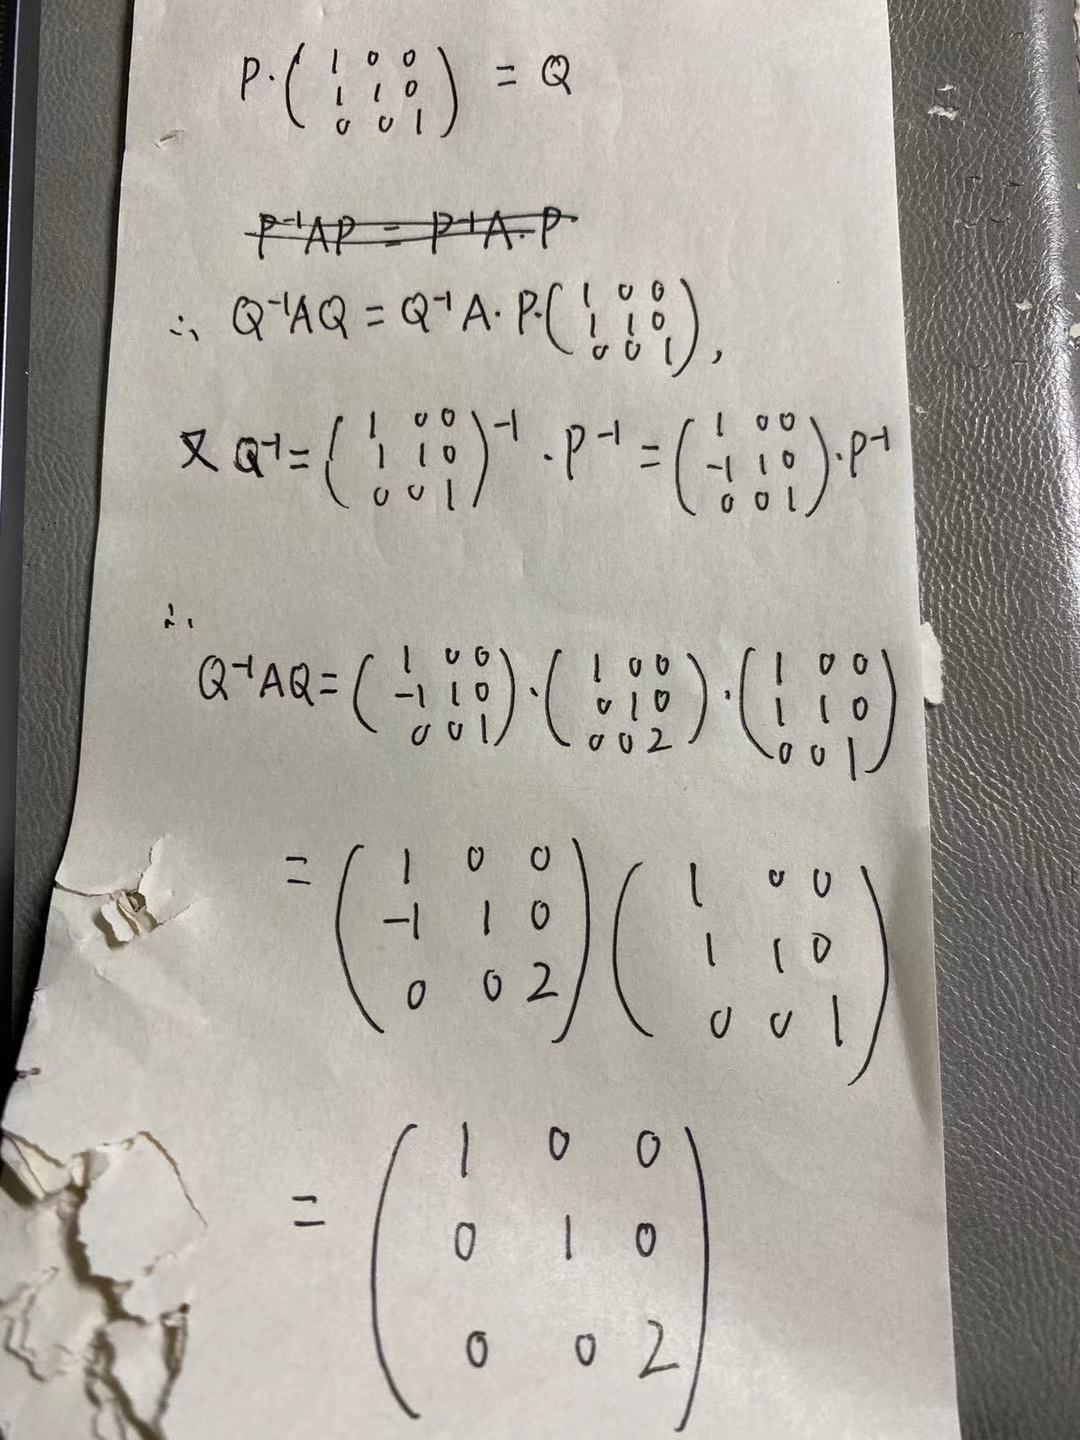 P·( 1 0 0
1 1 0
0 0 1 ) = Q
P⁻¹AP = P⁻¹A·P
∴ Q⁻¹AQ = Q⁻¹A·P·( 1 0 0
1 1 0
0 0 1 ),
又 Q⁻¹ = ( 1 0 0
1 1 0
0 0 1 )⁻¹ · P⁻¹ = ( 1 0 0
-1 1 0
0 0 1 )·P⁻¹
∴
Q⁻¹AQ = ( 1 0 0
-1 1 0
0 0 1 )·( 1 0 0
0 1 0
0 0 2 )·( 1 0 0
1 1 0
0 0 1 )
= ( 1 0 0
-1 1 0
0 0 2 ) ( 1 0 0
1 1 0
0 0 1 )
= ( 1 0 0
0 1 0
0 0 2 )